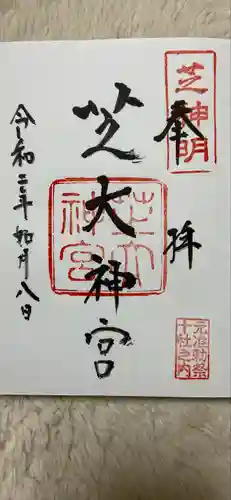 芝神明
奉拝
元准勅祭
十社之内
芝大神宮
芝大
神宮
令和二年如月八日